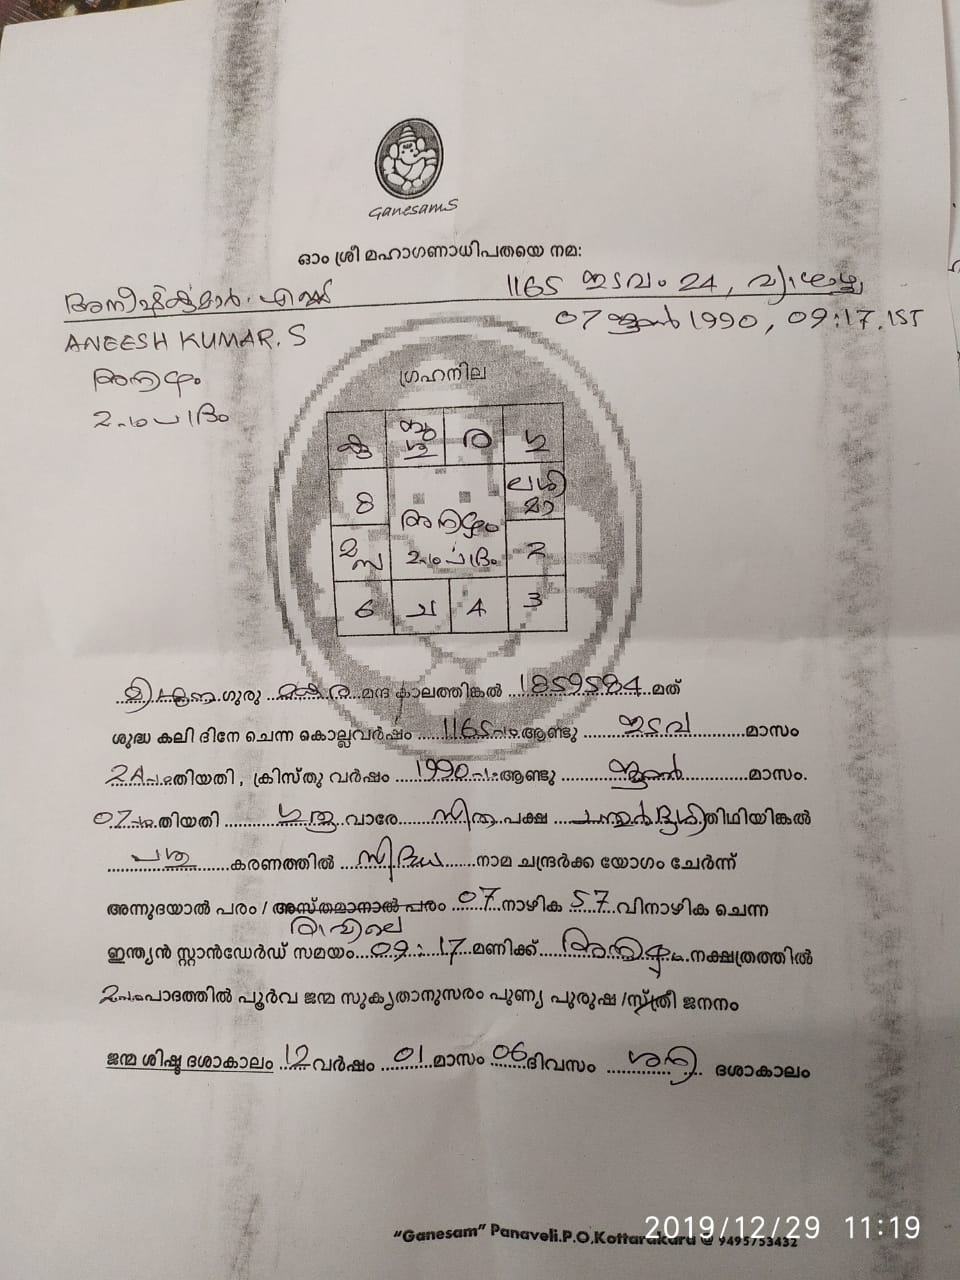 GanesamS
ഓം ശ്രീ മഹാഗണാധിപതയെ നമ:
അനീഷ്കുമാർ. എസ്സ് 1165 ഇടവം 24, വ്യാഴാഴ്ച
ANEESH KUMAR. S 07 ജൂൺ 1990, 09:17. IST
അനിഴം
2-ാം പാദം
ഗ്രഹനില
കു ബു ശു ര ഗു
8 ല ശി മാ
മ സ അനിഴം 2-ാം പാദം 2
6 ച 4 3
ഗുരു മന്ദ കാലത്തിങ്കൽ 1859584 മത്
ശുദ്ധ കലി ദിനേ ചെന്ന കൊല്ലവർഷം 1165-ാം ആണ്ടു ഇടവ മാസം
24-ാം തിയതി, ക്രിസ്തു വർഷം 1990-ാം ആണ്ടു ജൂൺ മാസം.
07-ാം തിയതി ഗുരു വാരേ സിത പക്ഷ ചതുർദ്ദശി തിഥിയിങ്കൽ
പശു കരണത്തിൽ സിദ്ധ നാമ ചന്ദ്രർക്ക യോഗം ചേർന്ന്
അന്നുദയാൽ പരം / അസ്തമാനാൽ പരം 07 നാഴിക 57 വിനാഴിക ചെന്ന
രാവിലെ
ഇന്ത്യൻ സ്റ്റാൻഡേർഡ് സമയം 09:17 മണിക്ക് അനിഴം നക്ഷത്രത്തിൽ
2-ാം പാദത്തിൽ പൂർവ ജന്മ സുകൃതാനുസരം പുണ്യ പുരുഷ /സ്ത്രീ ജനനം
ജന്മ ശിഷ്ട ദശാകാലം 12 വർഷം 01 മാസം 06 ദിവസം ശനി ദശാകാലം
"Ganesam" Panaveli.P.O,Kottarakara @ 9495753432
2019/12/29 11:19